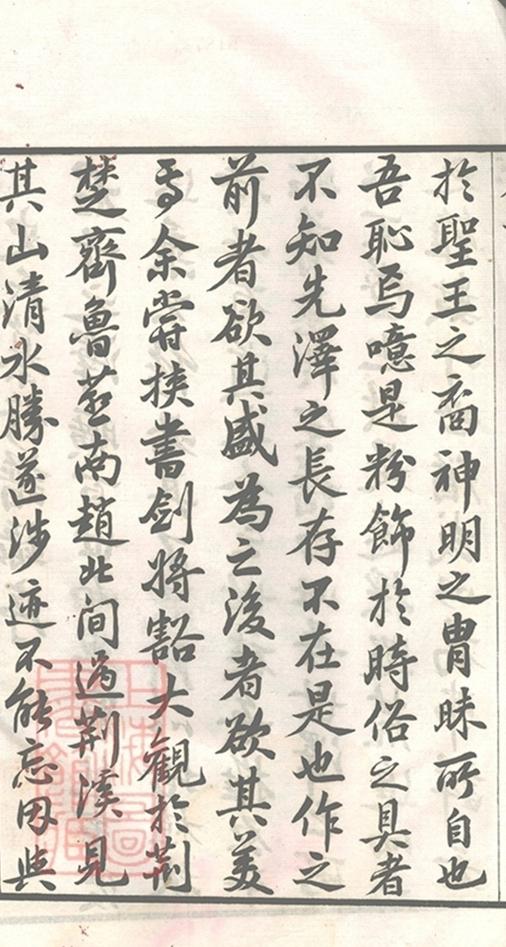 於聖王之裔神明之胄昧所自也
吾恥焉噫是粉飾於時俗之具者
不知先澤之長存不在是也作之
前者欲其盛為之後者欲其美
焉余嘗挾書劍將豁大觀於荆
楚齊魯燕南趙北间過荆溪見
其山清水勝遂涉迹不能忘因與